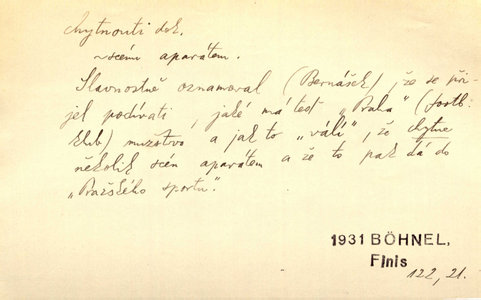 chytnouti dok.
~ scénu aparátem.
Slavnostně oznamoval (Bernášek), že se při-
jel podívati, jaké má teď „Praha" (footb.
klub) mužstvo, a jak to „válí", že chytne
několik scén aparátem a že to pak dá do
„Pražského sportu".
1931 BÖHNEL,
Finis
122, 21.